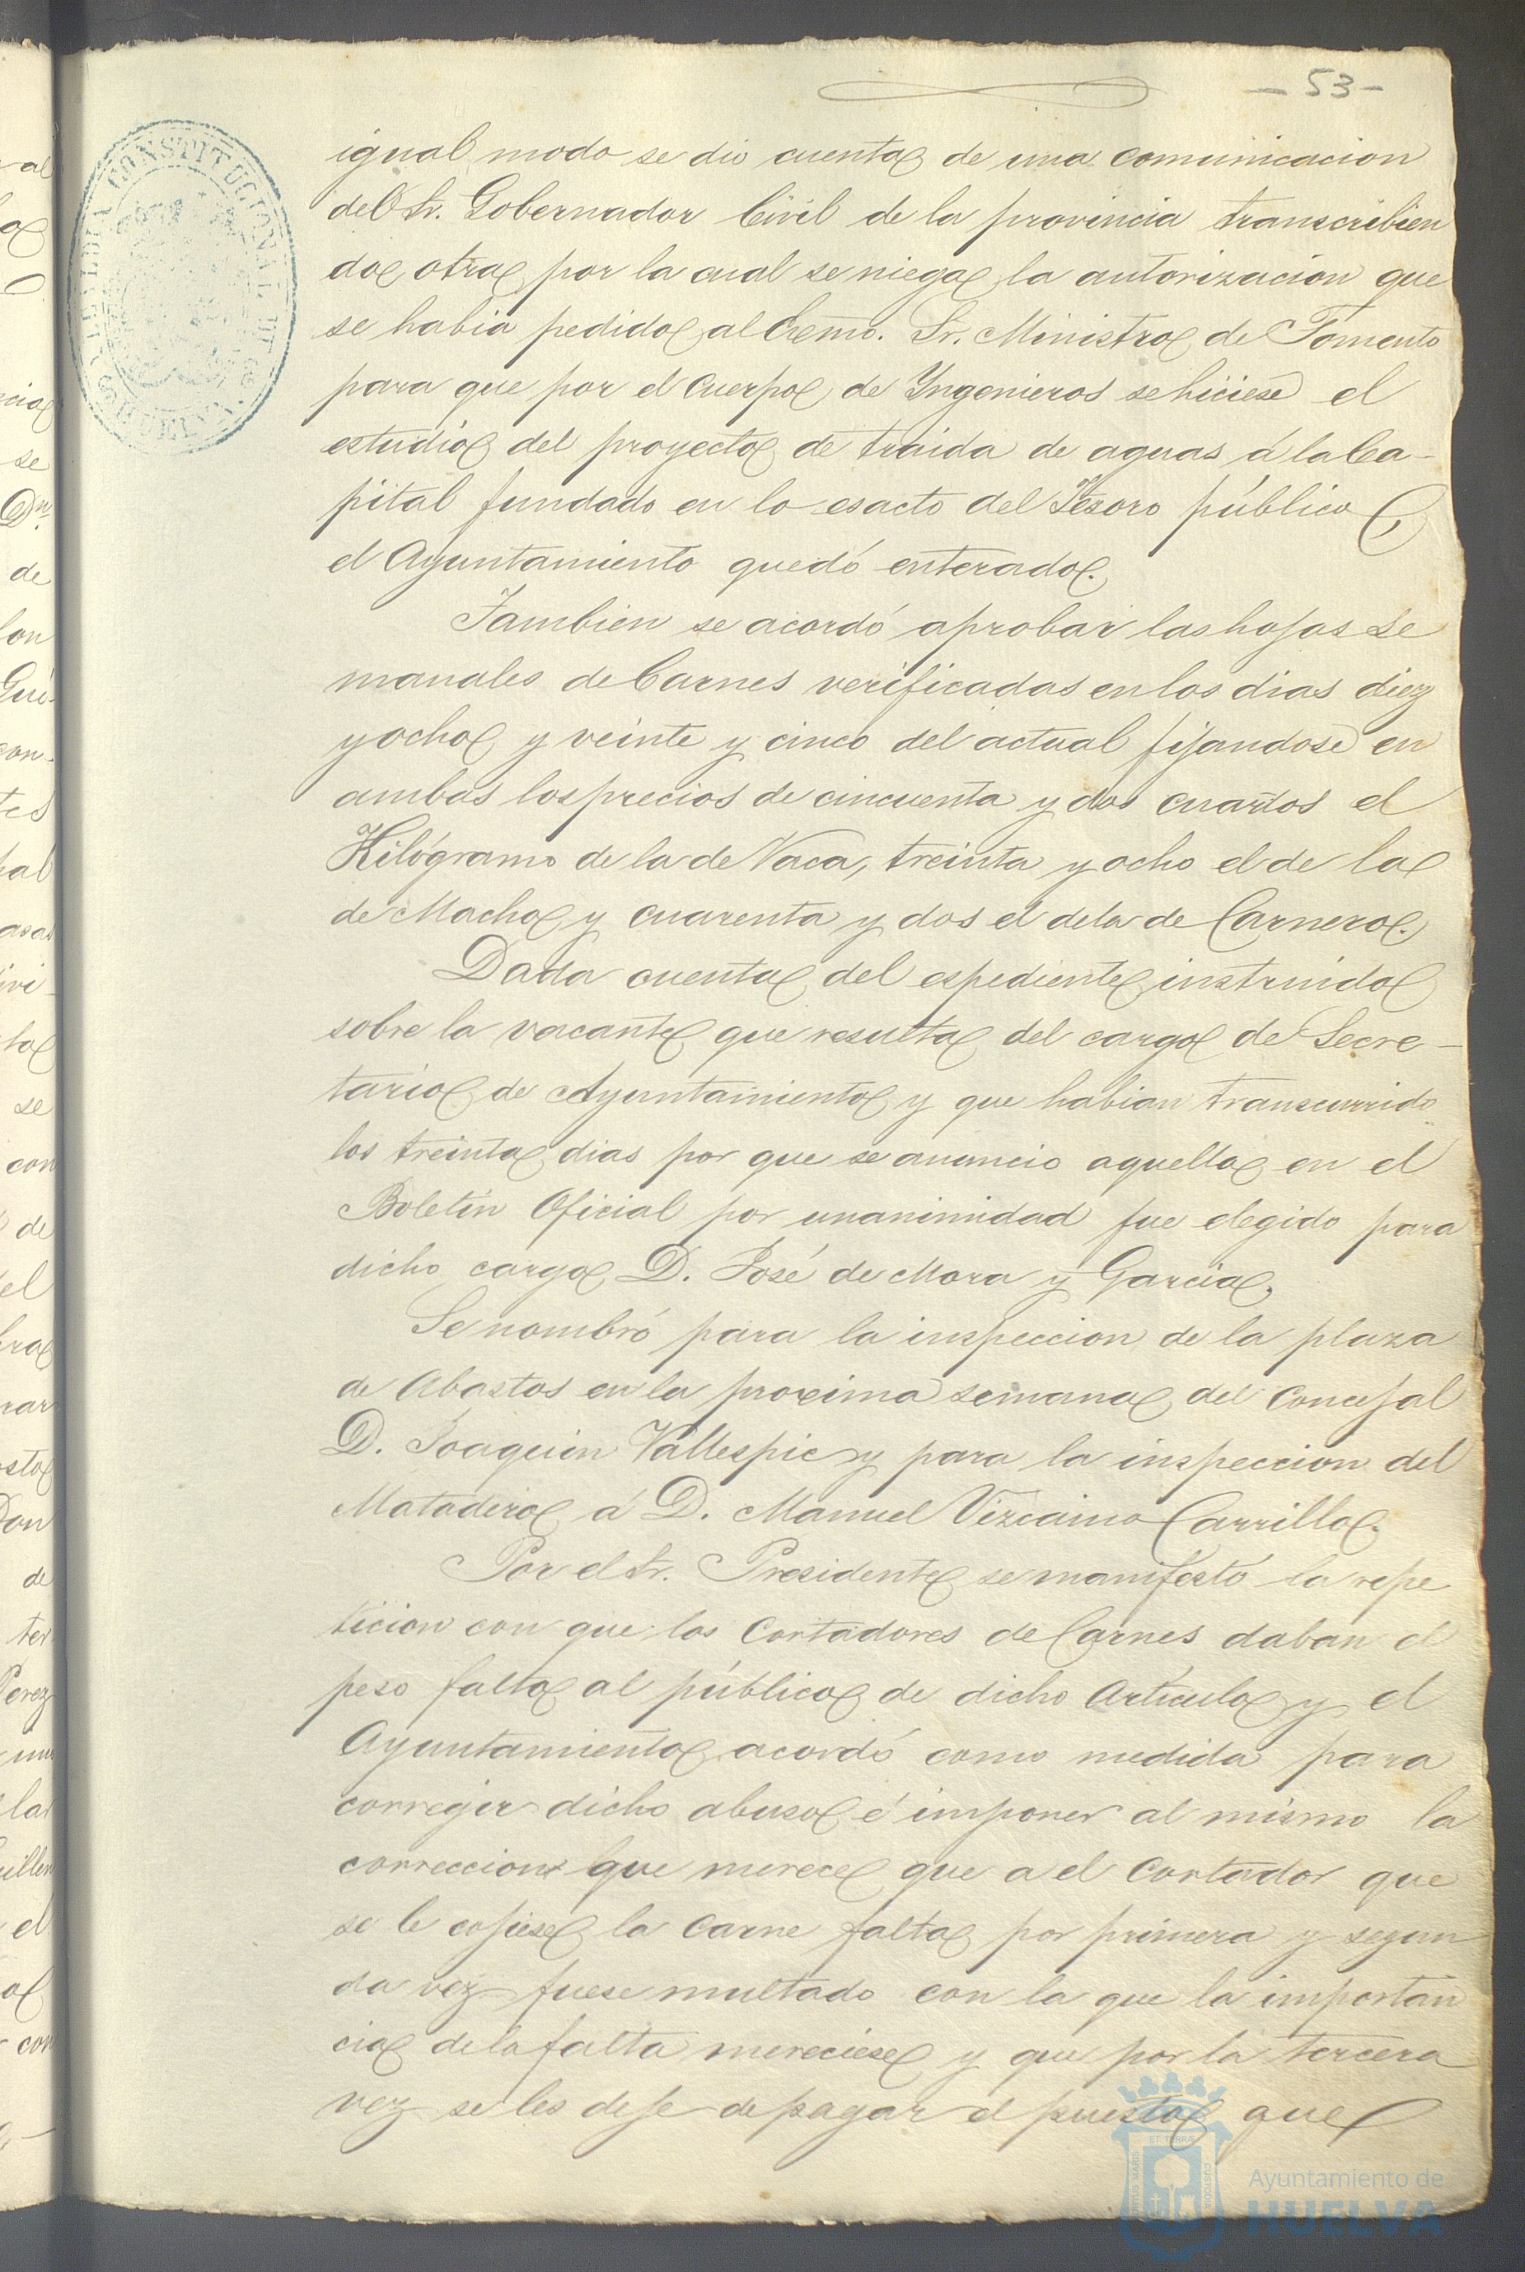 - 53 -
igual modo se dió cuenta de una comunicacion
del Sr. Gobernador Civil de la provincia transcribien
do otra por la cual se niega la autorizacion que
se habia pedido al Excmo. Sr. Ministro de Fomento
para que por el Cuerpo de Yngenieros se hiciese el
estudio del proyecto de traida de aguas á la Ca-
pital fundado en lo esacto del Tesoro público
el Ayuntamiento quedó enterado.
Tambien se acordó aprobar las hojas se
manales de Carnes verificadas en los dias diez
y ocho y veinte y cinco del actual fijandose en
ambas los precios de cincuenta y dos cuartos el
Kilógramo de la de Vaca, treinta y ocho el de la
de Macho y cuarenta y dos el de la de Carnero.
Dada cuenta del espediente instruido
sobre la vacante que resulta del cargo de Secre-
tario de Ayuntamiento y que habian transcurrido
los treinta dias por que se anuncio aquella en el
Boletin Oficial por unanimidad fue elegido para
dicho cargo D. José de Mora y Garcia.
Se nombró para la inspeccion de la plaza
de Abastos en la proxima semana del Concejal
D. Joaquin Vallespic y para la inspeccion del
Matadero á D. Manuel Vizcaino Carrillo.
Por el Sr. Presidente se manifestó la repe
ticion con que los Cortadores de Carnes daban el
peso falto al público de dicho Artículo y el
Ayuntamiento acordó como medida para
corregir dicho abuso é imponer al mismo la
correccion que merece que a el Cortador que
se le cojiese la Carne falta por primera y segun
da vez fuese multado con la que la importan
cia de la falta mereciese y que por la tercera
vez se les deje de pagar el puesto que
ALCALDIA CONSTITUCIONAL DE HUELVA
Ayuntamiento de
HUELVA